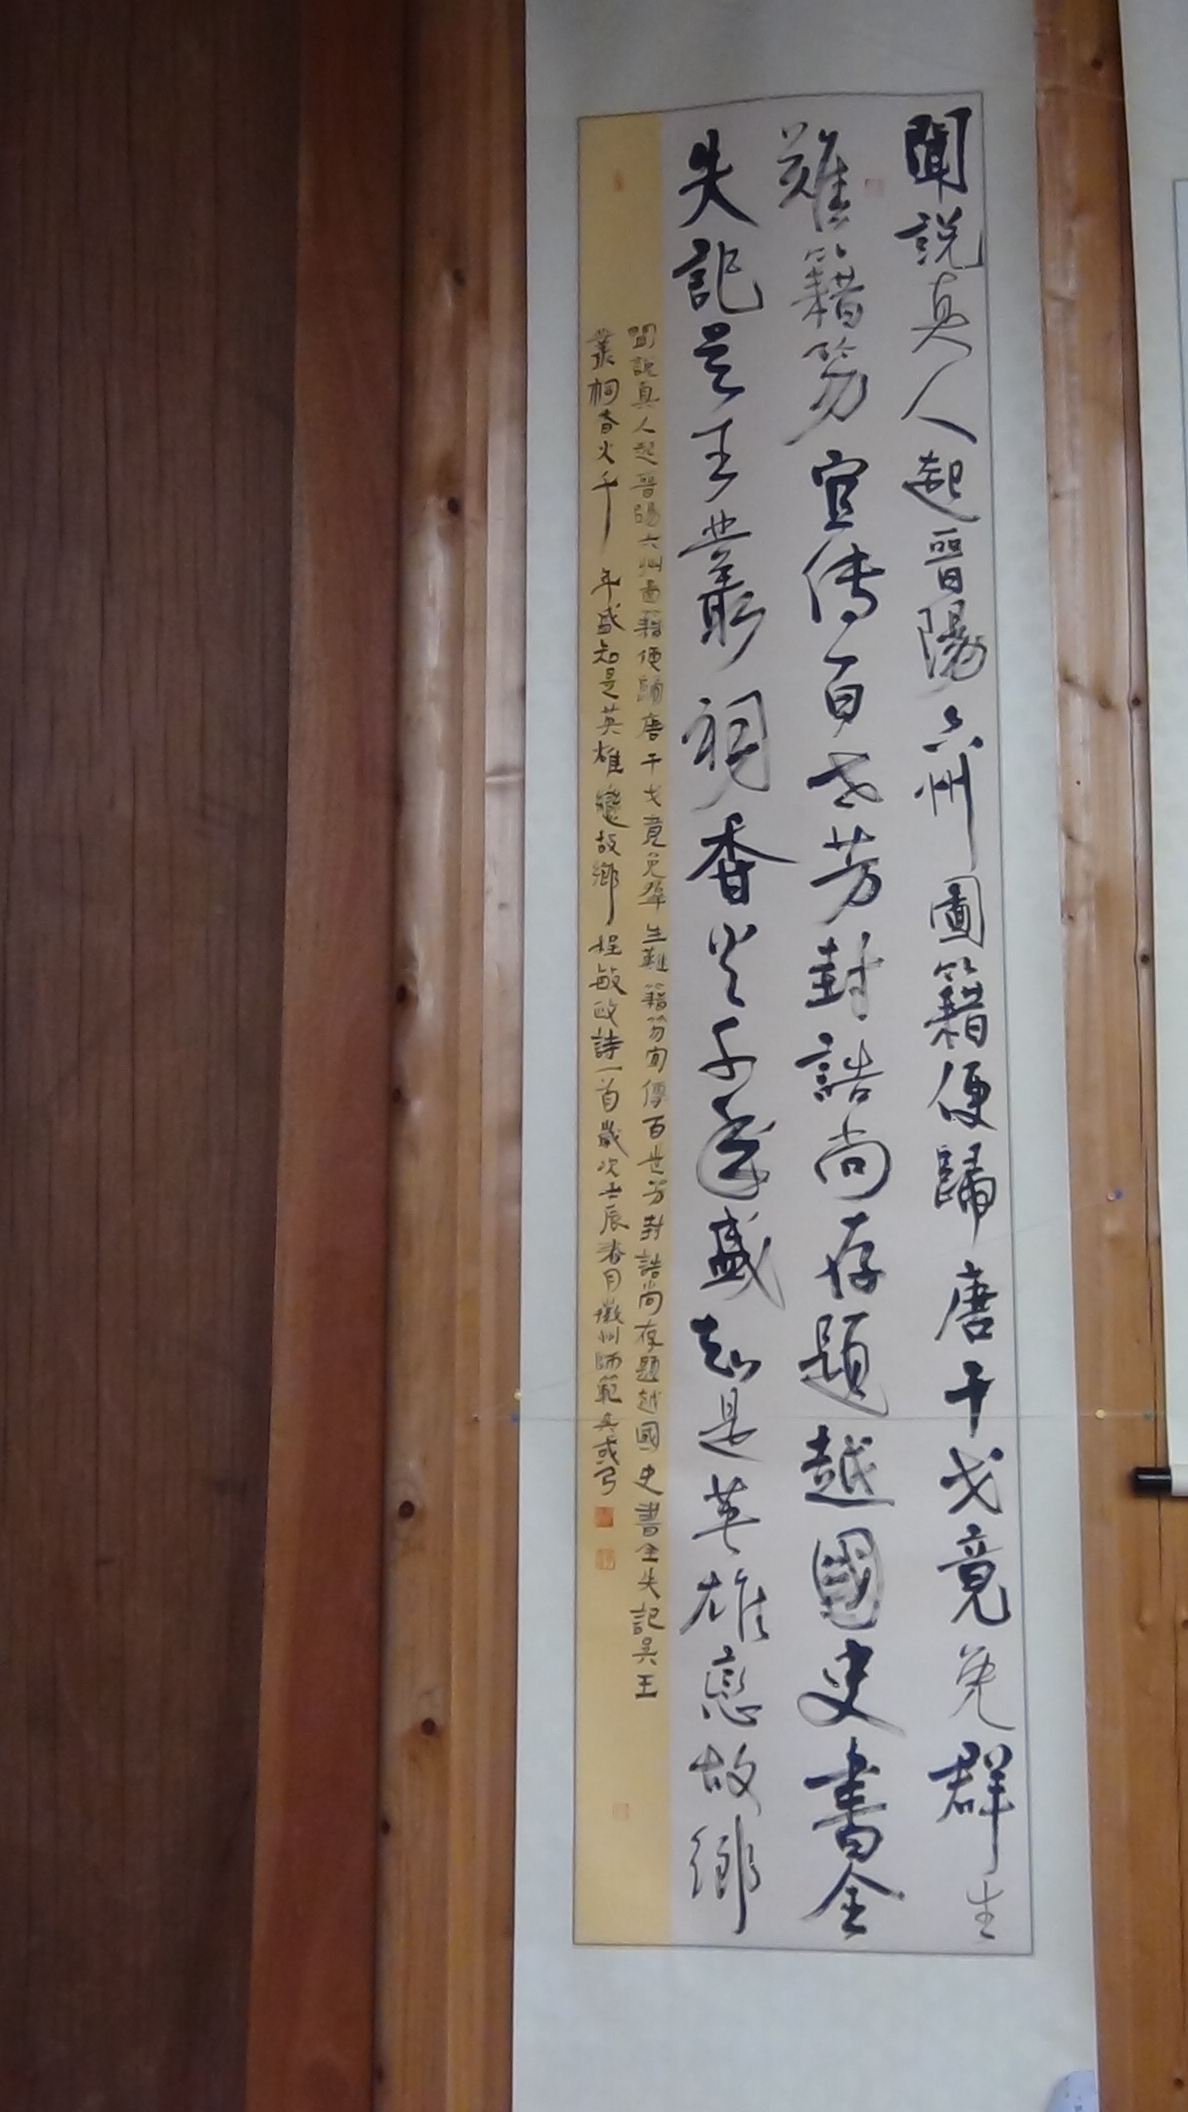 聞說真人起晉陽六州圖籍便歸唐干戈竟免群生
難籍笏宜傳百世芳封誥尚存題越國史書全
失記吴王叢祠香火千年盛知是英雄戀故鄉
聞說真人起晉陽六州圖籍便歸唐干戈竟免群生難籍笏宜傳百世芳封誥尚存題越國史書全失記吴王
叢祠香火千年盛知是英雄戀故鄉程敏政詩一首歲次壬辰春月徽州師範